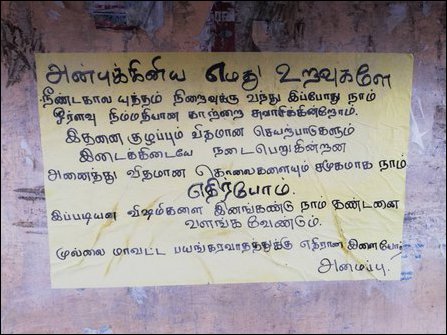 அன்புக்கினிய எமது உறவுகளே
நீண்டகால யுத்தம் நிறைவுக்கு வந்து இப்போது நாம்
ஓரளவு நிம்மதியான காற்றை சுவாசிக்கின்றோம்.
இதனை குழப்பும் விதமான செயற்பாடுகளும்
இடைக்கிடையே நடைபெறுகின்றன
அனைத்து விதமான கொலைகளையும் சமூகமாக நாம்
எதிர்ப்போம்.
இப்படியான விஷமிகளை இனங்கண்டு நாம் தண்டனை
வளங்க வேண்டும்.
முல்லை மாவட்ட பயங்கரவாதத்துக்கு எதிரான இளையோர்
அமைப்பு.